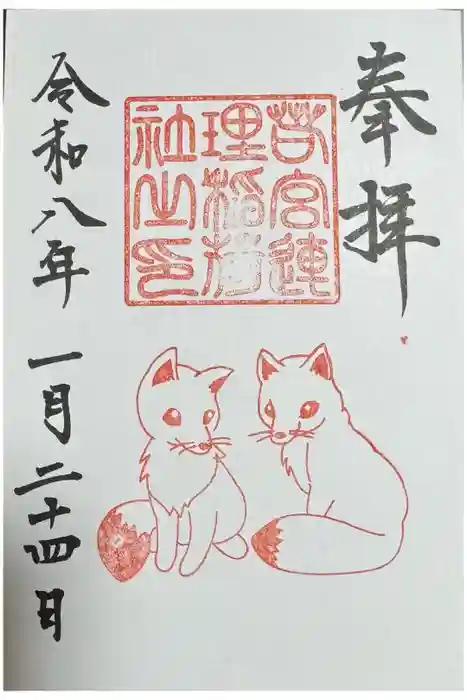 奉拝
若宮連
理稲荷
社之印
令和八年 一月二十四日